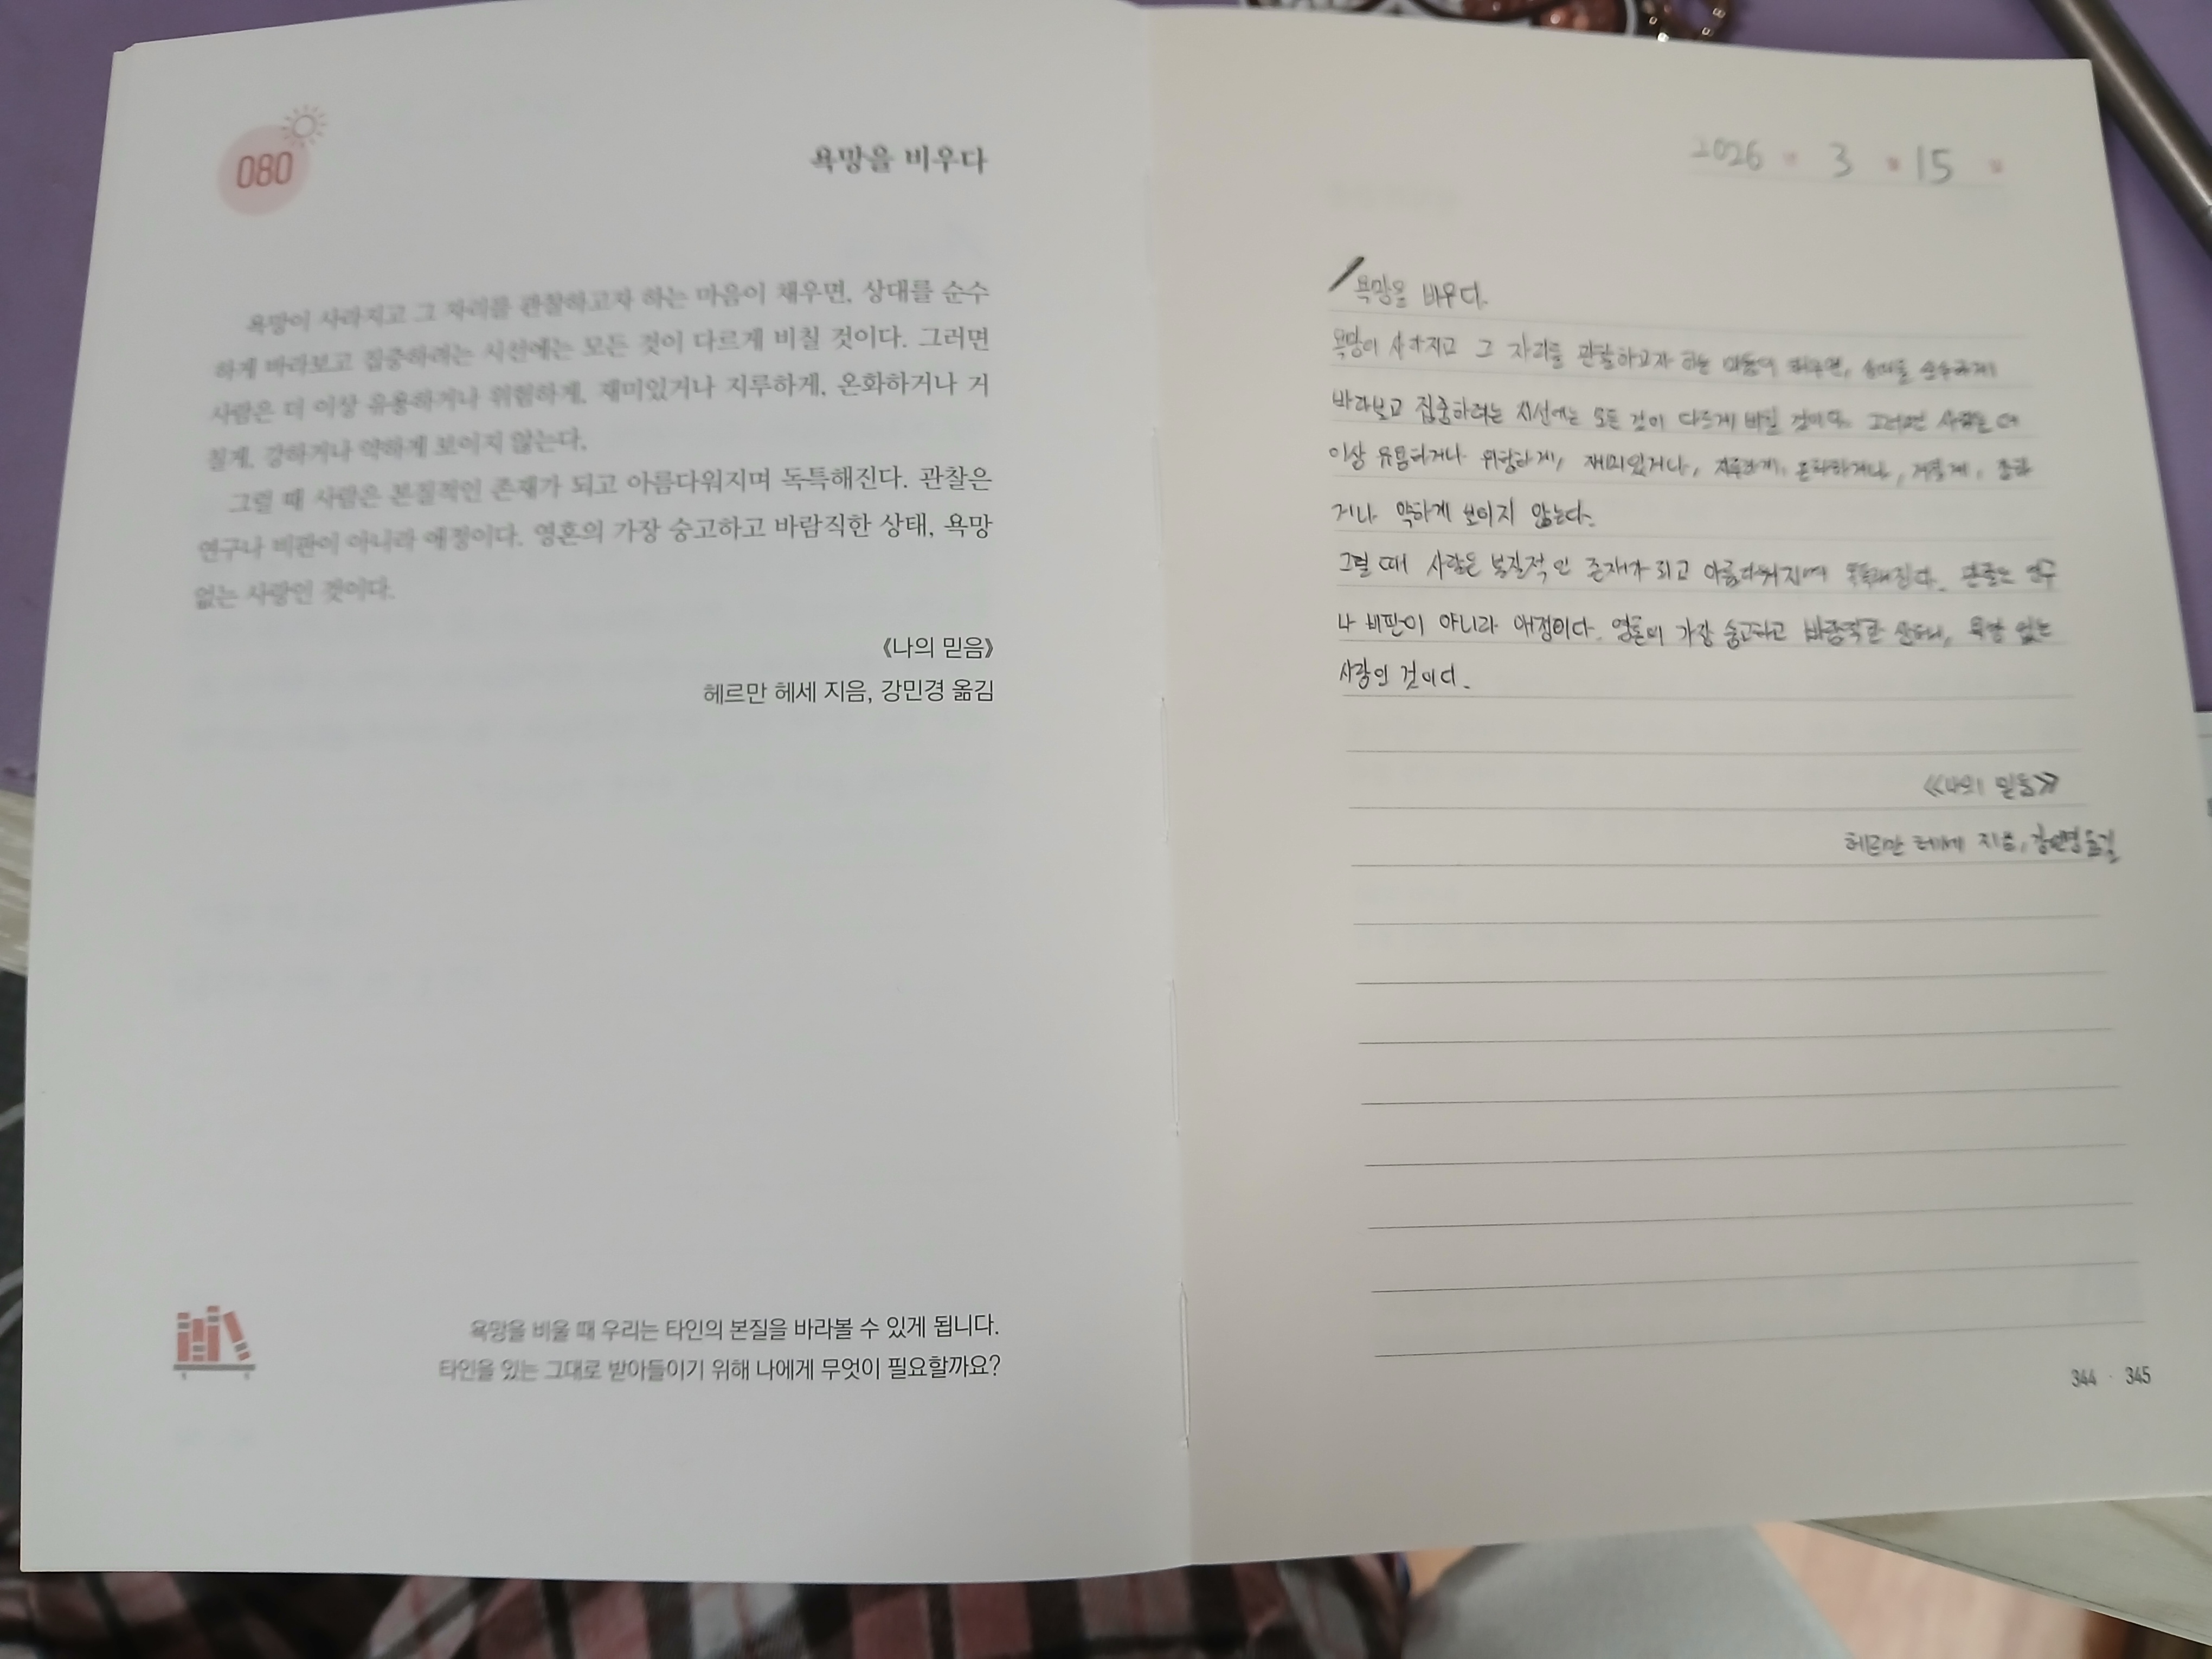 080
욕망을 비우다
욕망이 사라지고 그 자리를 관찰하고자 하는 마음이 채우면, 상대를 순수
하게 바라보고 집중하려는 시선에는 모든 것이 다르게 비칠 것이다. 그러면
사람은 더 이상 유용하거나 위험하게, 재미있거나 지루하게, 온화하거나 거
칠게, 강하거나 약하게 보이지 않는다.
그럴 때 사람은 본질적인 존재가 되고 아름다워지며 독특해진다. 관찰은
연구나 비판이 아니라 애정이다. 영혼의 가장 숭고하고 바람직한 상태, 욕망
없는 사랑인 것이다.
《나의 믿음》
헤르만 헤세 지음, 강민경 옮김
욕망을 비울 때 우리는 타인의 본질을 바라볼 수 있게 됩니다.
타인을 있는 그대로 받아들이기 위해 나에게 무엇이 필요할까요?
2026 . 3 . 15 .
욕망을 비우다.
욕망이 사라지고 그 자리를 관찰하고자 하는 마음이 채우면, 상대를 순수하게
바라보고 집중하려는 시선에는 모든 것이 다르게 비칠 것이다. 그러면 사람은 더
이상 유용하거나 위험하게, 재미있거나, 지루하게, 온화하거나, 거칠게,
거나 약하게 보이지 않는다.
그럴 때 사람은 본질적인 존재가 되고 아름다워지며 독특해진다. 관찰은 연구
나 비판이 아니라 애정이다. 영혼의 가장 숭고하고 바람직한 상태, 욕망 없는
사랑인 것이다.
《나의 믿음》
헤르만 헤세 지음, 강민경 옮김
344 · 345